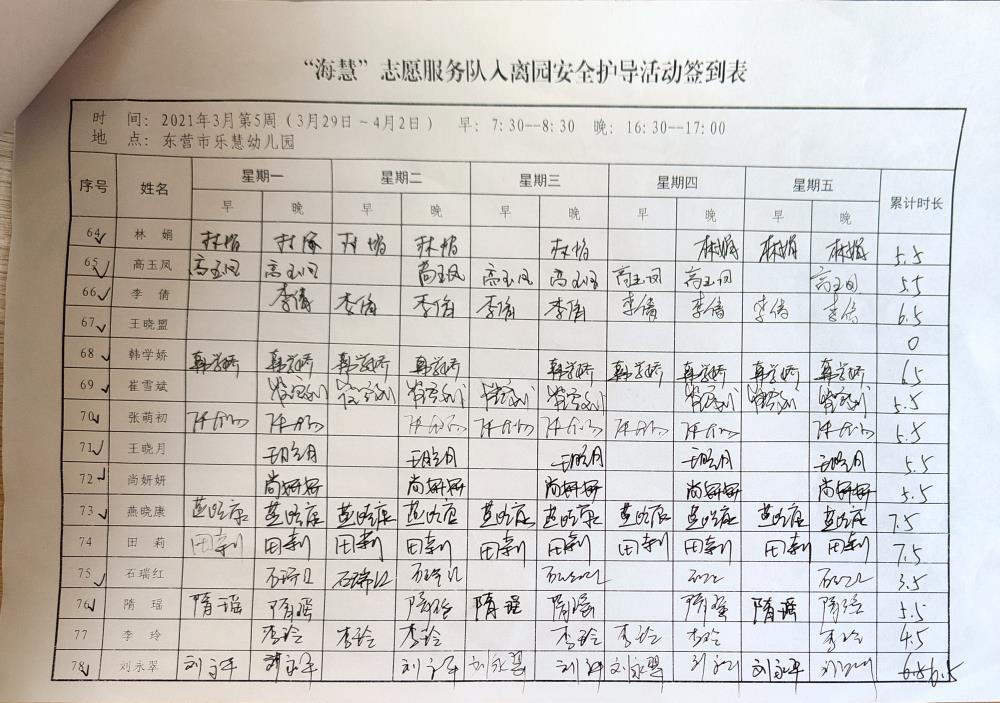 “海慧”志愿服务队入离园安全护导活动签到表
时 间：2021年3月第5周（3月29日～4月2日） 早：7:30--8:30 晚：16:30--17:00
地 点：东营市乐慧幼儿园
序号 姓名 星期一 星期二 星期三 星期四 星期五 累计时长
早 晚 早 晚 早 晚 早 晚 早 晚
64 林娟 林娟 林娟 林娟 林娟 林娟 林娟 林娟 林娟 5.5
65 高玉凤 高玉凤 高玉凤 高玉凤 高玉凤 高玉凤 高玉凤 高玉凤 高玉凤 5.5
66 李倩 李倩 李倩 李倩 李倩 李倩 李倩 李倩 李倩 李倩 6.5
67 王晓盟 0
68 韩学娇 韩学娇 韩学娇 韩学娇 韩学娇 韩学娇 韩学娇 韩学娇 韩学娇 韩学娇 6.5
69 崔雪斌 5.5
70 张萌初 5.5
71 王晓月 王晓月 王晓月 王晓月 王晓月 王晓月 5.5
72 尚妍妍 尚妍妍 尚妍妍 尚妍妍 尚妍妍 尚妍妍 5.5
73 燕晓康 燕晓康 燕晓康 燕晓康 燕晓康 燕晓康 燕晓康 燕晓康 燕晓康 燕晓康 燕晓康 7.5
74 田莉 田莉 田莉 田莉 田莉 田莉 田莉 田莉 田莉 田莉 田莉 7.5
75 石瑞红 石瑞红 石瑞红 石瑞红 3.5
76 隋瑶 隋瑶 隋瑶 隋瑶 隋瑶 隋瑶 隋瑶 隋瑶 隋瑶 5.5
77 李玲 李玲 李玲 李玲 李玲 李玲 李玲 李玲 4.5
78 刘永翠 刘永翠 刘永翠 刘永翠 刘永翠 刘永翠 刘永翠 刘永翠 6.5